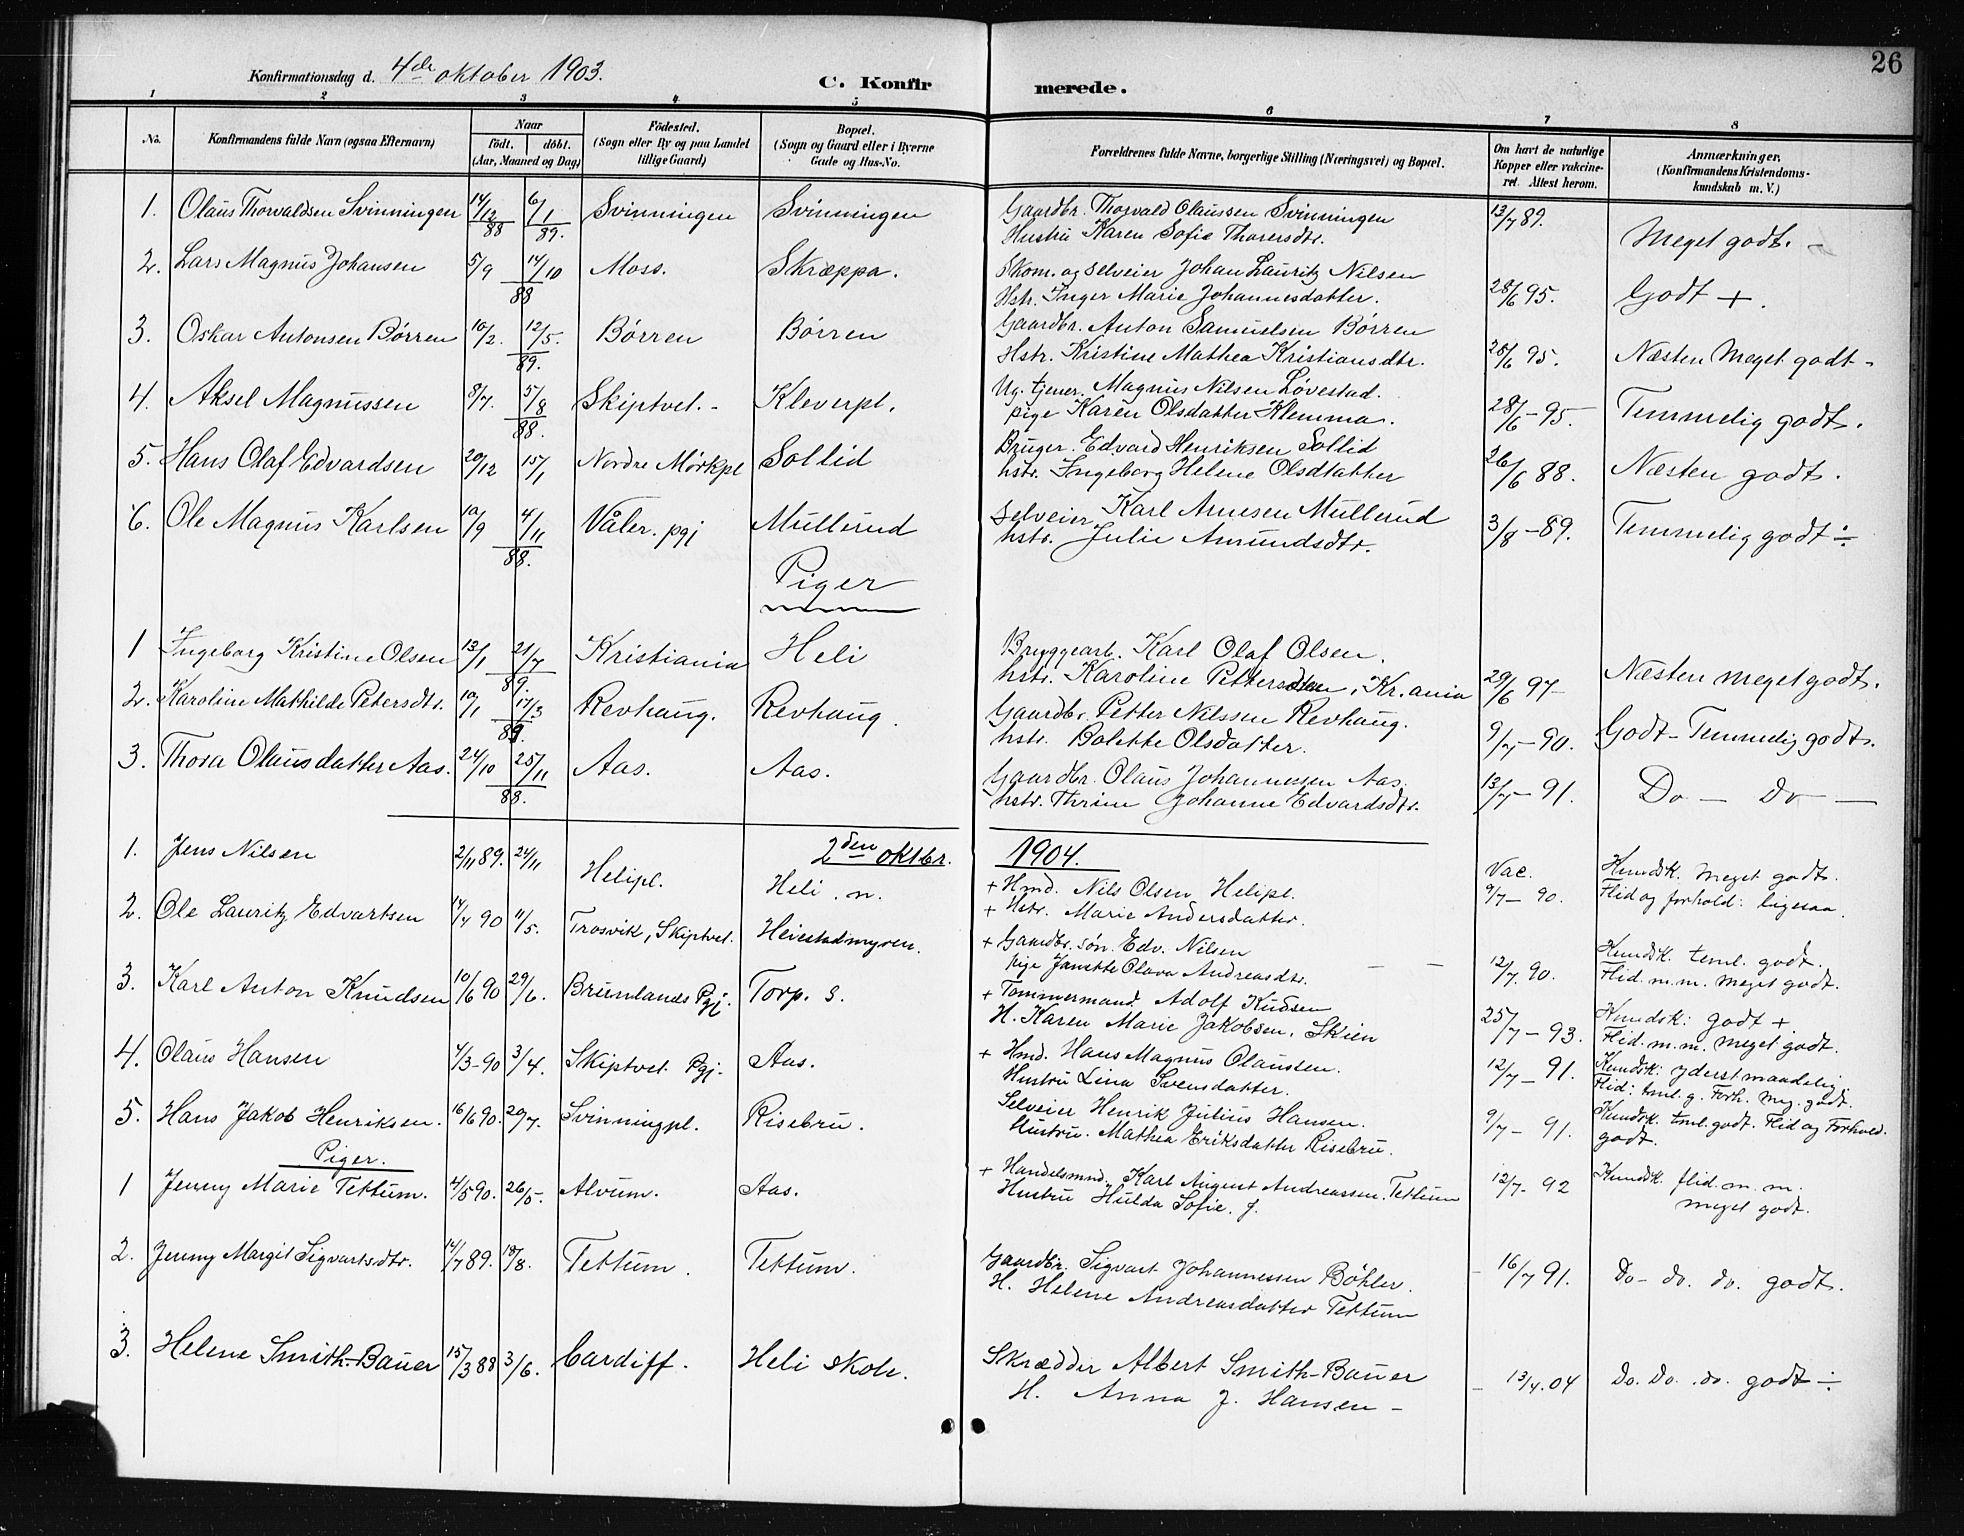 26
Konfirmationsdag d. 4de oktober 1903.
C. Konfirmerede.
1 2 3 4 5 6 7 8
No.
Konfirmandens fulde Navn (ogsaa Efternavn)
Naar
födt. döbt.
(Aar, Maaned og Dag)
Födested.
(Sogn eller By og paa Landet
tillige Gaard)
Bopæl.
(Sogn og Gaard eller i Byerne
Gade og Hus-No.
Forældrenes fulde Navne, borgerlige Stilling (Næringsvei) og Bopæl.
Om havt de naturlige
Kopper eller vakcine-
ret. Attest herom.
Anmærkninger.
(Konfirmandens Kristendoms-
kundskab m. V.)
1. Olaus Thorvaldsen Svinningen 14/12 88 6/1 89. Svinningen Svinningen Gaardbr. Thorvald Olaussen Svinningen 13/7 89. Meget godt. -
Hustru Karen Sofie Thorersdtr.
2. Lars Magnus Johansen 5/9 14/10 88 Moss. Skræppa. Skom. og selveier Johan Lauritz Nilsen 28/6 95. Godt +.
Hstr. Inger Marie Johannesdatter.
3. Oskar Antonsen Börren 10/2. 12/5. 89. Börren Börren Gaardbr. Anton Samuelsen Börren 28/6 95. Næsten Meget godt -
Hstr. Kristine Mathea Kristiansdtr.
4. Aksel Magnussen 8/7. 5/8 88. Skiptvet. - Kleverpl. Ug. tjener. Magnus Nilsen Løvestad. 28/6 - 95 - Temmelig godt.
pige Karen Olsdatter Klemma.
5. Hans Olaf Edvardsen 20/12 15/1 Nordre Mörkpl Sollid Bruger. Edvard Henriksen Sollid 26/6 88. Næsten godt.
hstr. Ingeborg Helene Olsdtatter
6. Ole Magnus Karlsen 10/9 4/11 88. Våler. pgj Mullerud Selveier Karl Arnesen Mullerud 3/8 - 89. Temmelig godt ÷
hstr. Julie Amundsdtr.
Piger
1 Ingeborg Kristine Olsen 13/1 21/7 89 Kristiania Heli Bryggearb. Karl Olaf Olsen. 29/6 97 - Næsten meget godt.
hstr. Karoline Pettersdtr, Kr.ania
2. Karoline Mathilde Petersdtr. 10/1 17/3 89. Revhaug. Revhaug. Gaardbr. Petter Nilssen Revhaug. 9/7 - 90. Godt - Temmelig godt.
hstr. Bolette Olsdatter.
3. Thora Olausdatter Aas. 24/10 25/11 88. Aas. Aas. Gaardbr. Olaus Johannessen Aas. 13/7 - 91. Do - Do -
hstr. Thrine Johanne Edvardsdtr.
2den oktbr. 1904.
1. Jens Nilsen 2/11 89. 24/11 Helipl. Heli. n. + Hmd. Nils Olsen Helipl. Vac. 9/7 - 90. Kundsk. meget godt.
+ Hstr. Marie Andersdatter. Flid og forhold: ligesaa.
2. Ole Lauritz Edvartsen 14/4 90 11/5. Trosvik, Skiptvet. Heiestadmyren. + Gaardbr. søn. Edv. Nilsen 12/7. 90. Kundsk. teml. godt.
Pige Janette Olava Andreasdtr. - - Flid. m.m. meget godt.
3. Karl Anton Knudsen 10/6 90 29/6. Brunlanes Pgj. Torp. s. + Tømmermand Adolf Knudsen 25/7 - 93. Kundsk: godt +
H. Karen Marie Jakobsen, Skien Flid. m.m. meget godt.
4. Olaus Hansen 4/3 - 90 3/4. Skiptvet Pgj. Aas. + Hmd. Hans Magnus Olaussen. 12/7 - 91. Kundsk: yderst maadelig.
Hustru Lina Svensdatter. Flid: teml. g. Forh. Meg. godt.
5. Hans Jakob Henriksen. 16/6 90. 20/7. Svinningpl. Risebru. Selveier Henrik Julius Hansen. 9/7 - 91. Kundsk. teml. godt. Flid og Forhold.
Hustru. Mathea Eriksdatter Risebru. godt.
Piger.
1 Jenny Marie Tettum. 4/5 90. 26/5. Alvum. Aas. + Handelsmnd. Karl August Andreassen. Tettum 12/7 - 92 Kundsk. flid. m. m.
Hustru Hulda Sofie. J. meget godt.
2. Jenny Margit Sigvartsdtr. 14/7 89. 18/8. Tettum. Tettum. Gaardbr. Sigvart Johannessen Böhler. - 16/7 91. Do - do. do. godt.
H. Helene Andreasdatter Tettum
3. Helene Smith-Bauer 15/3 88 3/6. Cardiff. Heli skole. Skrædder Albert Smith-Bauer - 13/4. 04 Do. Do. do. godt ÷
H. Anna J. Hansen -